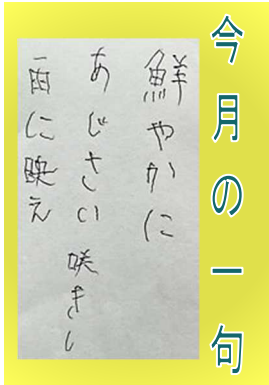 今月の一句
鮮やかに
あじさい咲きし
雨に映え